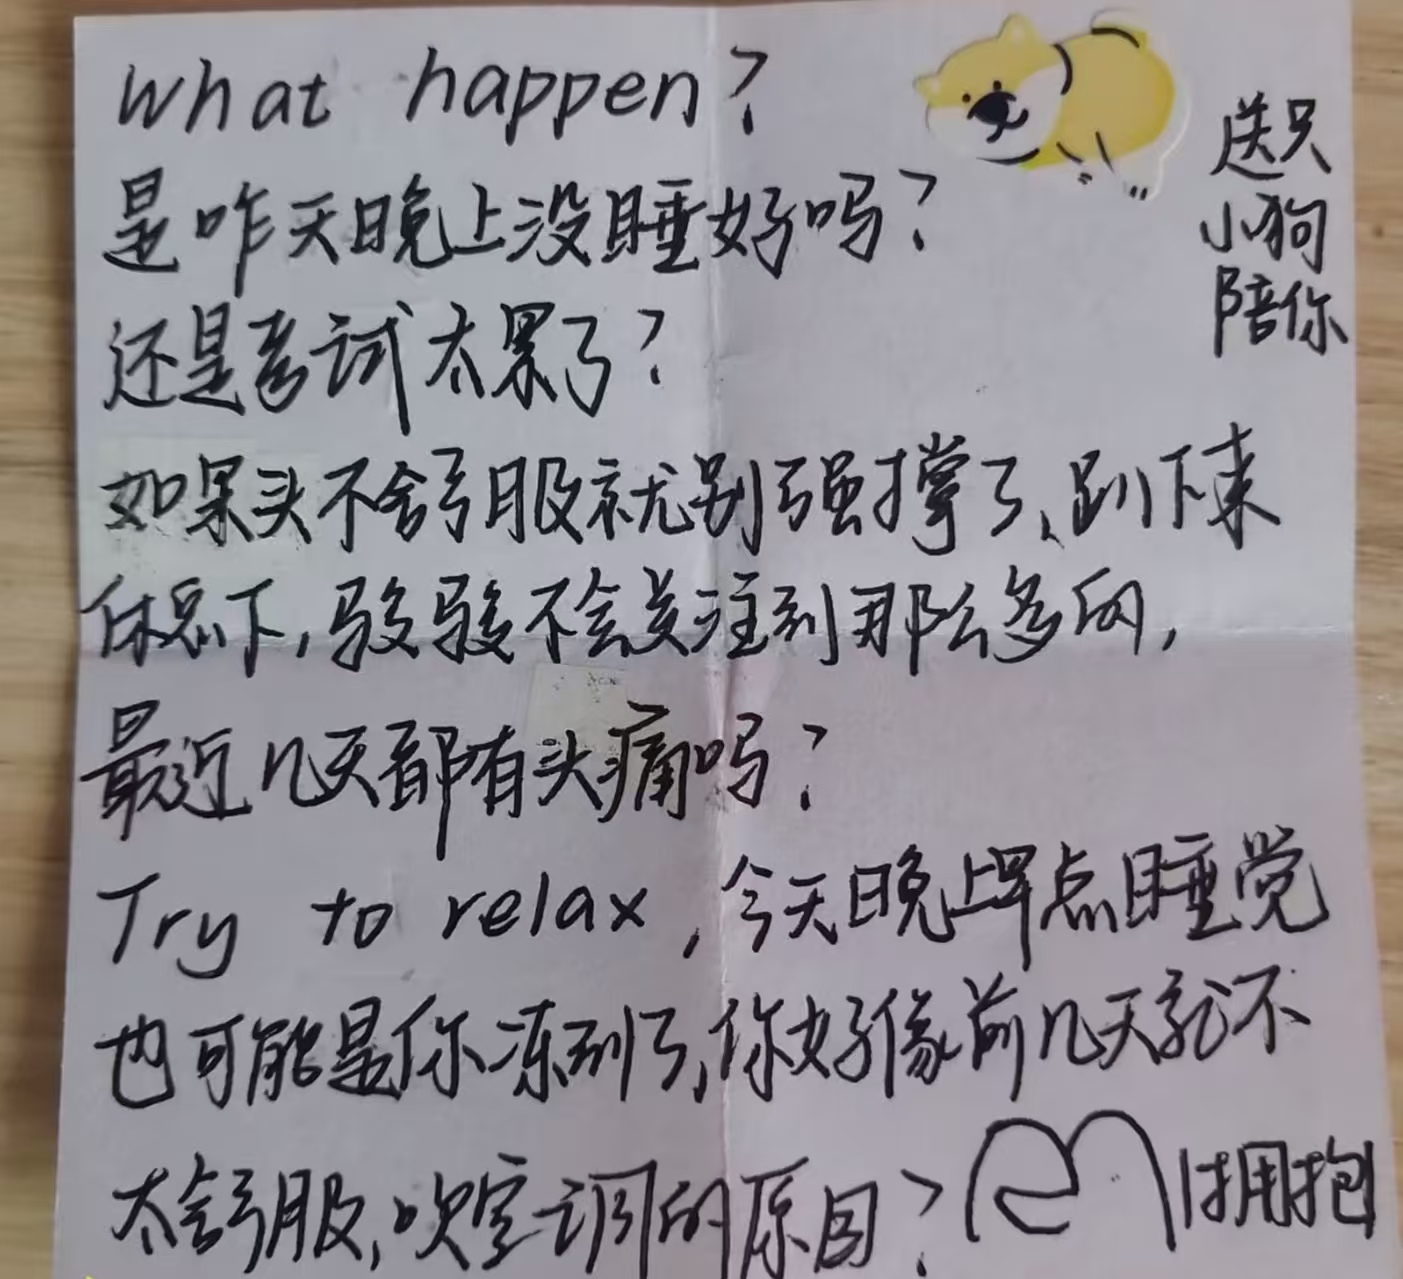 What happen?
是昨天晚上没睡好吗?
还是考试太累了?
如果头不舒服就别强撑了,趴下来
休息下,骏骏不会关注到那么多的,
最近几天都有头痛吗?
Try to relax,今天晚上早点睡觉
也可能是你冻到了,你好像前几天就不
太舒服,吹空调的原因?
拥抱
送只
小狗
陪你